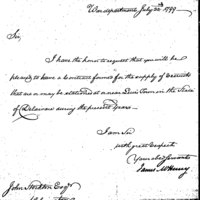 War department July 22nd 1799
Sir,
I have the honor to request that you will be
pleased to have a Contract formed for the supply of recruits
that are or may be stationed at or near Lewis Town in the State
of Delaware during the present year.
I am Sir
with great respect
Your obed servant
James McHenry
John Stockton Esqr